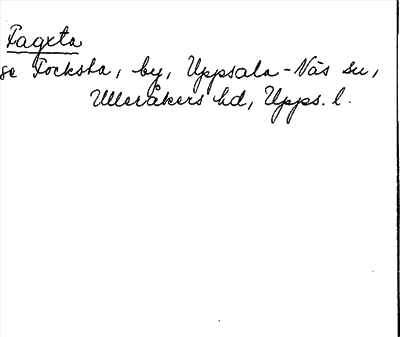 Fagxta
se Focksta, by, Uppsala-Näs sn,
Ulleråkers hd, Upps. l.